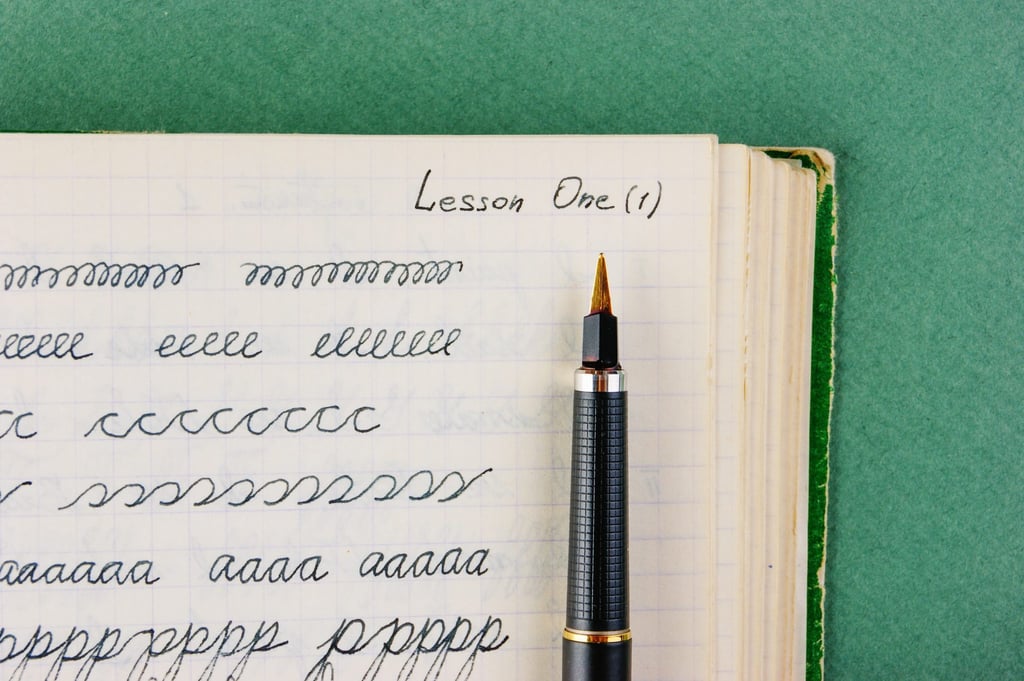 Lesson One (1)
eeeee eeeee eeeeeee
cc cccccccc
aaaaaaa aaaa aaaaa
pppppppp ppppp